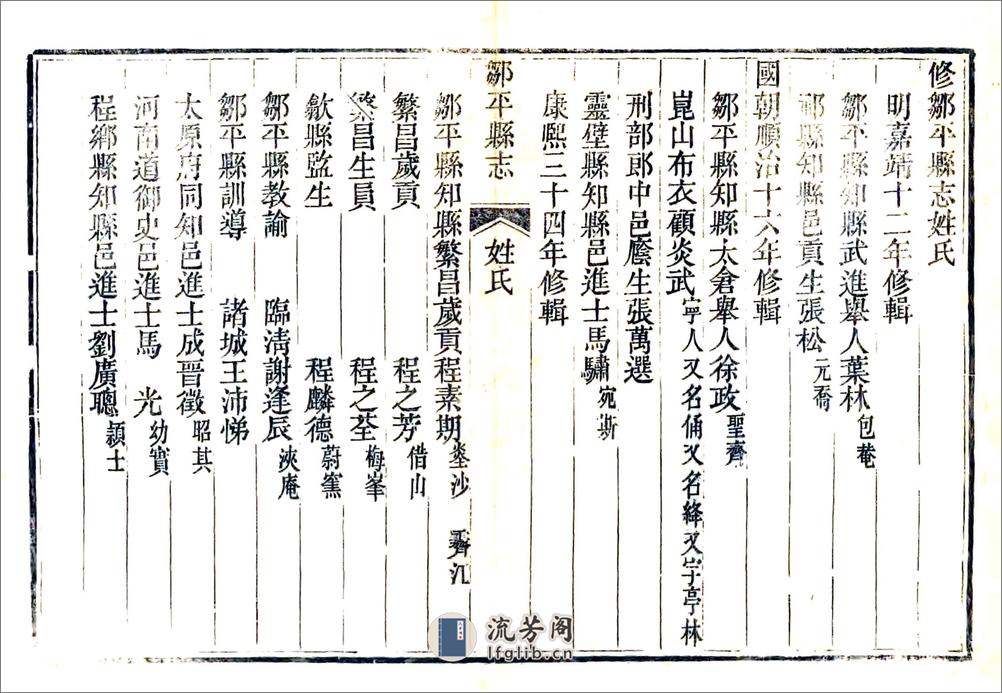 修鄒平縣志姓氏
明嘉靖十二年修輯
鄒平縣知縣武進舉人葉林 包菴
祁縣知縣邑貢生張松 元喬
國朝順治十六年修輯
鄒平縣知縣太倉舉人徐政 聖齊
崑山布衣顧炎武 寧人又名俑又名絳又字亭林
刑部郎中邑廕生張萬選
靈壁縣知縣邑進士馬驌 宛斯
康熙三十四年修輯
鄒平縣志 姓氏
鄒平縣知縣繁昌歲貢程素期 沙 霽江
繁昌歲貢 程之芳 借山
繁昌生員 程之荃 梅峯
歙縣監生 程麟德 蔚窯
鄒平縣教諭 臨清謝逢辰 浹庵
鄒平縣訓導 諸城王沛悌
太原府同知邑進士成晉徵 昭其
河南道御史邑進士馬 光 幼實
程鄉縣知縣邑進士劉廣聰 潁士
流芳阁
lfglib.cn